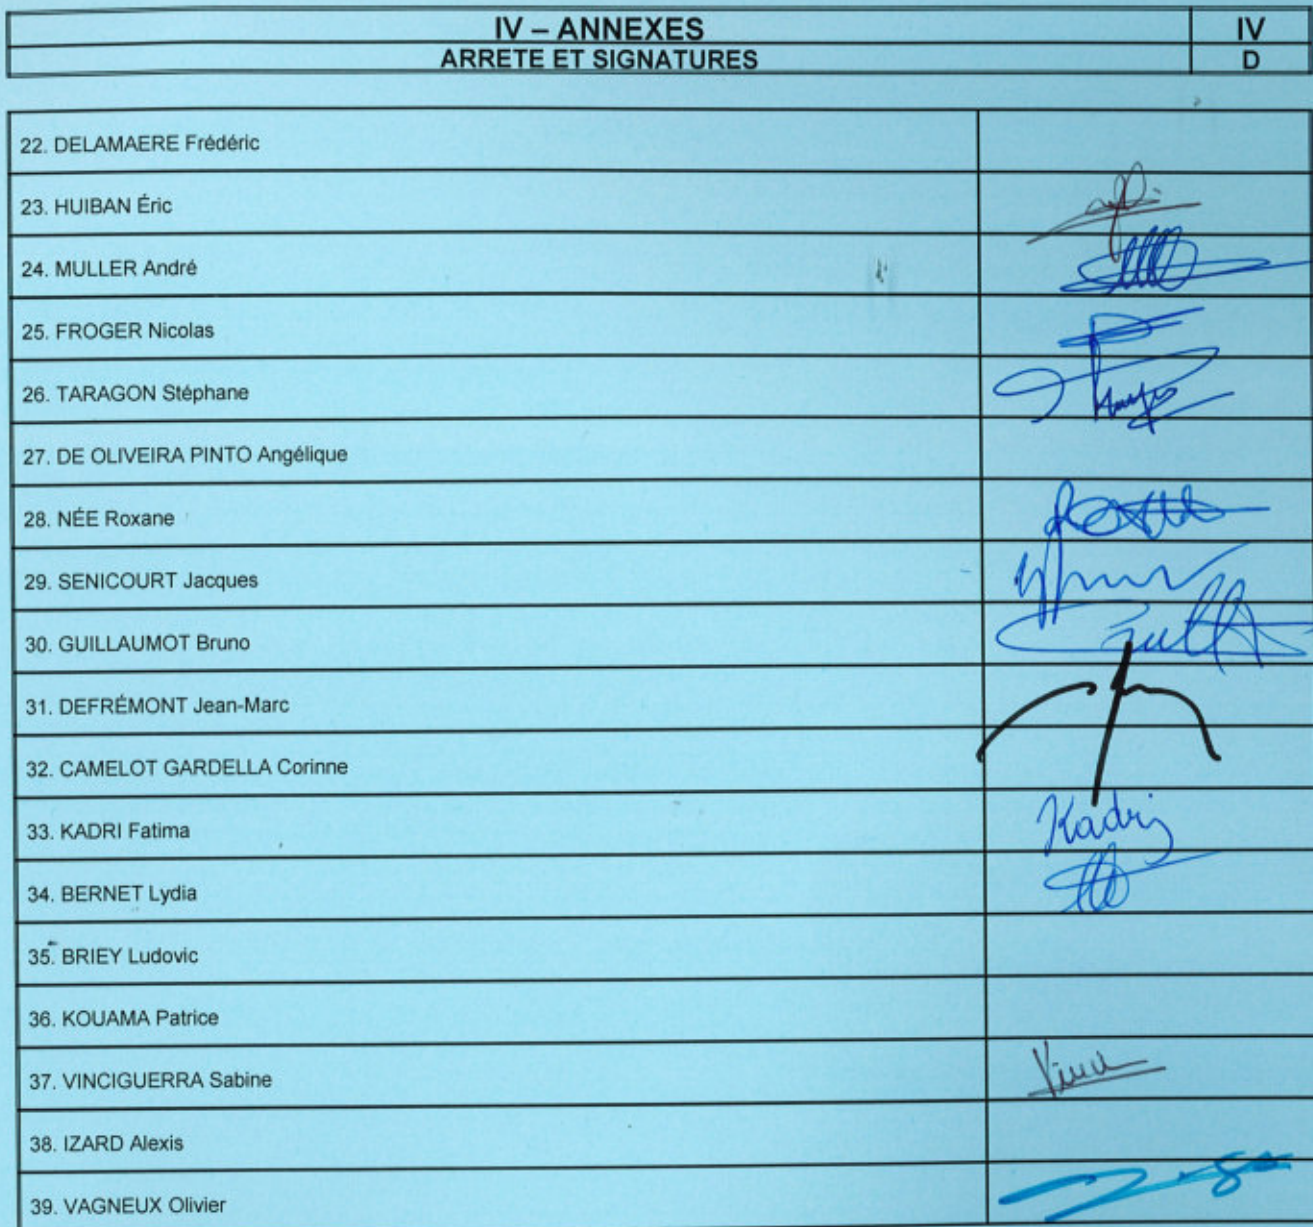 IV – ANNEXES IV
ARRETE ET SIGNATURES D
22. DELAMAERE Frédéric
23. HUIBAN Éric
24. MULLER André
25. FROGER Nicolas
26. TARAGON Stéphane
27. DE OLIVEIRA PINTO Angélique
28. NÉE Roxane
29. SENICOURT Jacques
30. GUILLAUMOT Bruno
31. DEFRÉMONT Jean-Marc
32. CAMELOT GARDELLA Corinne
33. KADRI Fatima Kadri
34. BERNET Lydia
35. BRIEY Ludovic
36. KOUAMA Patrice
37. VINCIGUERRA Sabine
38. IZARD Alexis
39. VAGNEUX Olivier